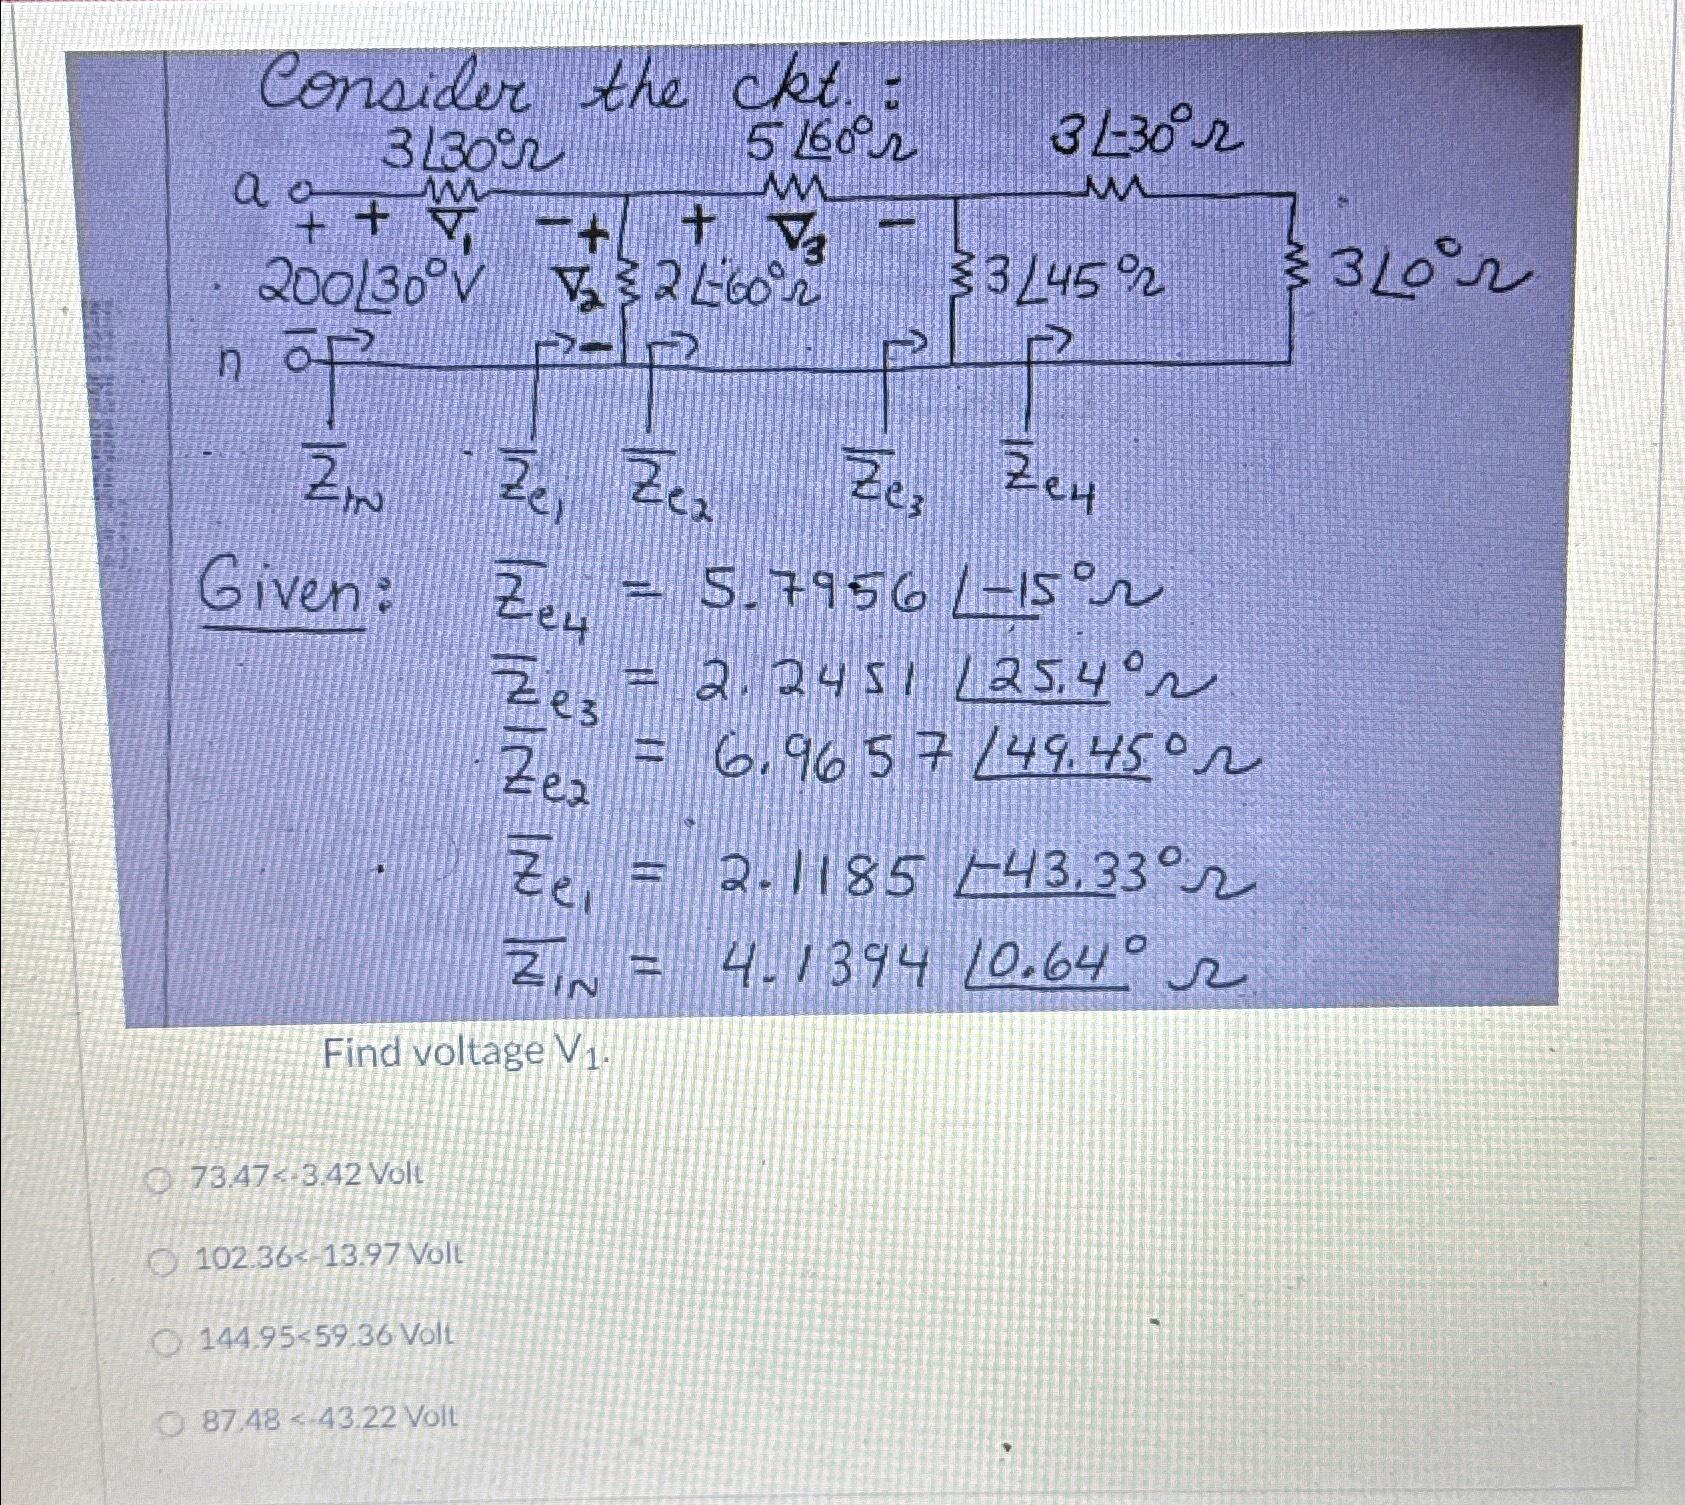 Consider the ckt. :
3∠30°Ω 5∠60°Ω 3∠-30°Ω
a
+ + V̅₁ - + + V̅₃ -
200∠30°V V̅₂ 2∠-60°Ω 3∠45°Ω 3∠0°Ω
n - -
Z̅IN Z̅e₁ Z̅e₂ Z̅e₃ Z̅e4
Given: Z̅e4 = 5.7956 ∠-15°Ω
Z̅e3 = 2.2451 ∠25.4°Ω
Z̅e2 = 6.9657 ∠49.45°Ω
Z̅e1 = 2.1185 ∠-43.33°Ω
Z̅IN = 4.1394 ∠0.64°Ω
Find voltage V₁.
73.47<-3.42 Volt
102.36<-13.97 Volt
144.95<59.36 Volt
87.48 <-43.22 Volt